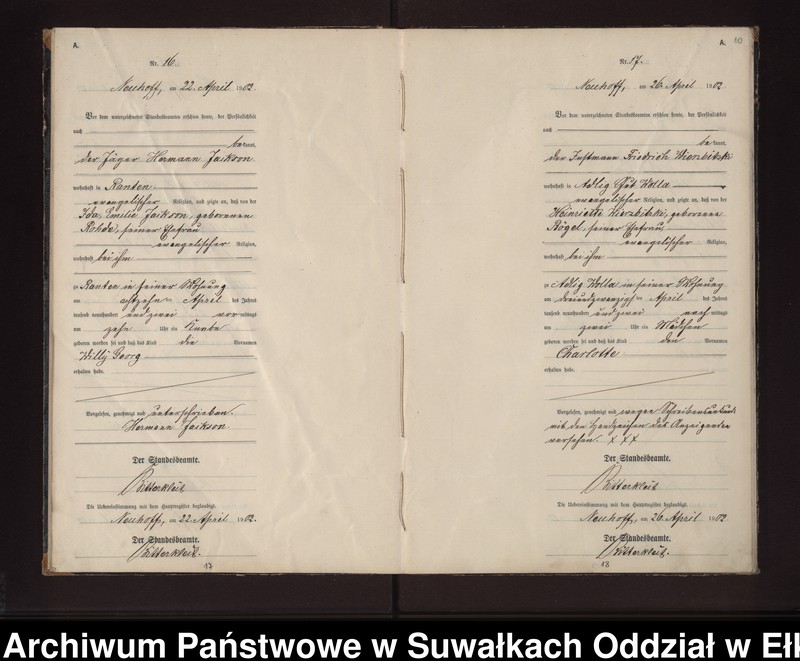 A.
Nr. 16.
Neuhoff, am 22. April 1902.
Vor dem unterzeichneten Standesbeamten erschien heute, der Persönlichkeit
nach
bekannt,
der Jäger Hermann Jackson
wohnhaft in Ranten
evangelischer Religion, und zeigte an, daß von der
Ida, Emilie Jackson, geborenen
Rohde, seiner Ehefrau
evangelischer Religion,
wohnhaft bei ihm
zu Ranten in seiner Wohnung
am achtzehnten April des Jahres
tausend neunhundert und zwei vormittags
um zehn Uhr ein Knabe
geboren worden sei und daß das Kind die Vornamen
Willy Georg
erhalten habe.
Vorgelesen, genehmigt und unterschrieben.
Hermann Jackson
Der Standesbeamte.
Ritterkleit
Die Uebereinstimmung mit dem Hauptregister beglaubigt.
Neuhoff, am 22. April 1902.
Der Standesbeamte.
Ritterkleit.
17
A. 10
Nr. 17.
Neuhoff, am 26. April 1902
Vor dem unterzeichneten Standesbeamten erschien heute, der Persönlichkeit
nach
bekannt,
der Instmann Friedrich Wierzbitzki
wohnhaft in Adlig Gut Wolla
evangelischer Religion, und zeigte an, daß von der
Heinriette Wierzbitzki, geborenen
Rogel, seiner Ehefrau,
evangelischer Religion,
wohnhaft bei ihm
zu Adlig Wolla in seiner Wohnung
am dreiundzwanzigsten April des Jahres
tausend neunhundert und zwei nachmittags
um zwei Uhr ein Mädchen
geboren worden sei und daß das Kind den Vornamen
Charlotte
erhalten habe.
Vorgelesen, genehmigt und wegen Schreibensunkunde
mit den Handzeichen des Anzeigenden
versehen. XXX
Der Standesbeamte.
Ritterkleit
Die Uebereinstimmung mit dem Hauptregister beglaubigt.
Neuhoff, am 26. April 1902
Der Standesbeamte.
Ritterkleit.
18
Archiwum Państwowe w Suwałkach Oddział w Ełk